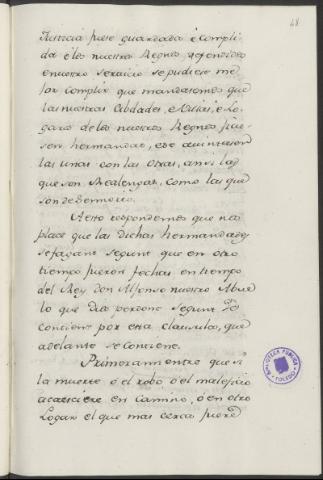 48
Justicia fuese guardada é compli
da é los nuestros Regnos defendidos
é nuestro servicio se pudiese me
jor complir que mandasemos que
las nuestras Cibdades, é Villas, é Lo
gares de los nuestros Regnos ficie
sen hermandat, é se aiuntasen
las unas con las otras, ansi las
que son Realengas, como las que
son de Sennorio.
A esto respondemos que nos
place que las dichas hermandades
se fagan segunt que en otro
tiempo fueron fechas en tiempo
del Rey don Alfonso nuestro Abue
lo que Dios perdone segunt se
contiene por esta clausula, que
adelante se contiene.
Primeramientre que si
la muerte ó el robo ó el maleficio
acaesciere en Camino, ó en otro
Logar el que mas cerca fuere
BIBLIOTECA PUBLICA
TOLEDO